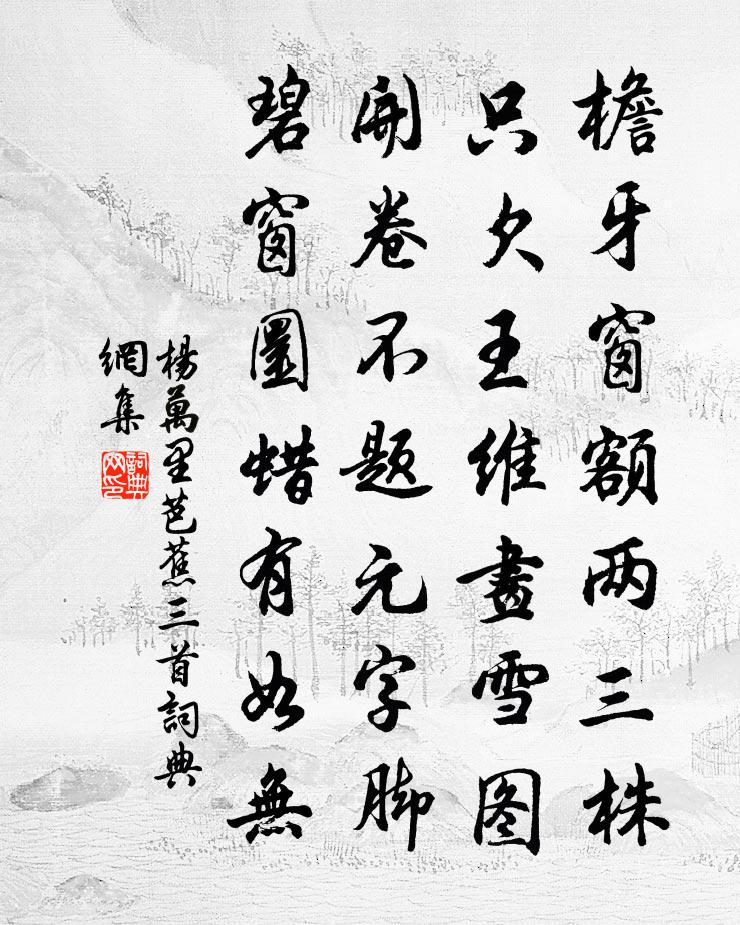 檐牙窗額两三株
只欠王維畫雪图
開卷不題元字脚
碧窗圖蜡有如無
楊萬里芭蕉三首詞典
網集
詞典
网印